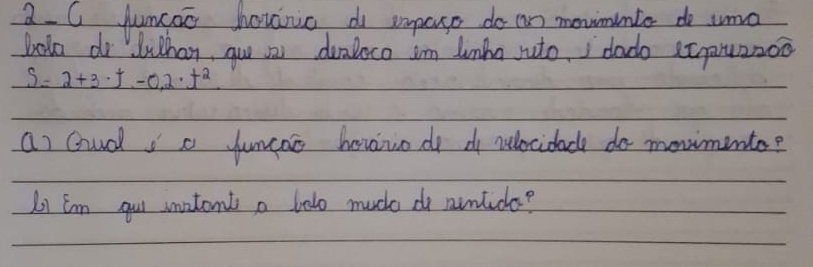 2 - A função horário de espaço do (m) movimento de uma
bola de bilhar, que se desloca em linha reta, é dado expressão
S = 2+3·t -0,2·t².
a) Qual é a função horário de de velocidade do movimento?
b) Em que instante a bola muda de sentido?